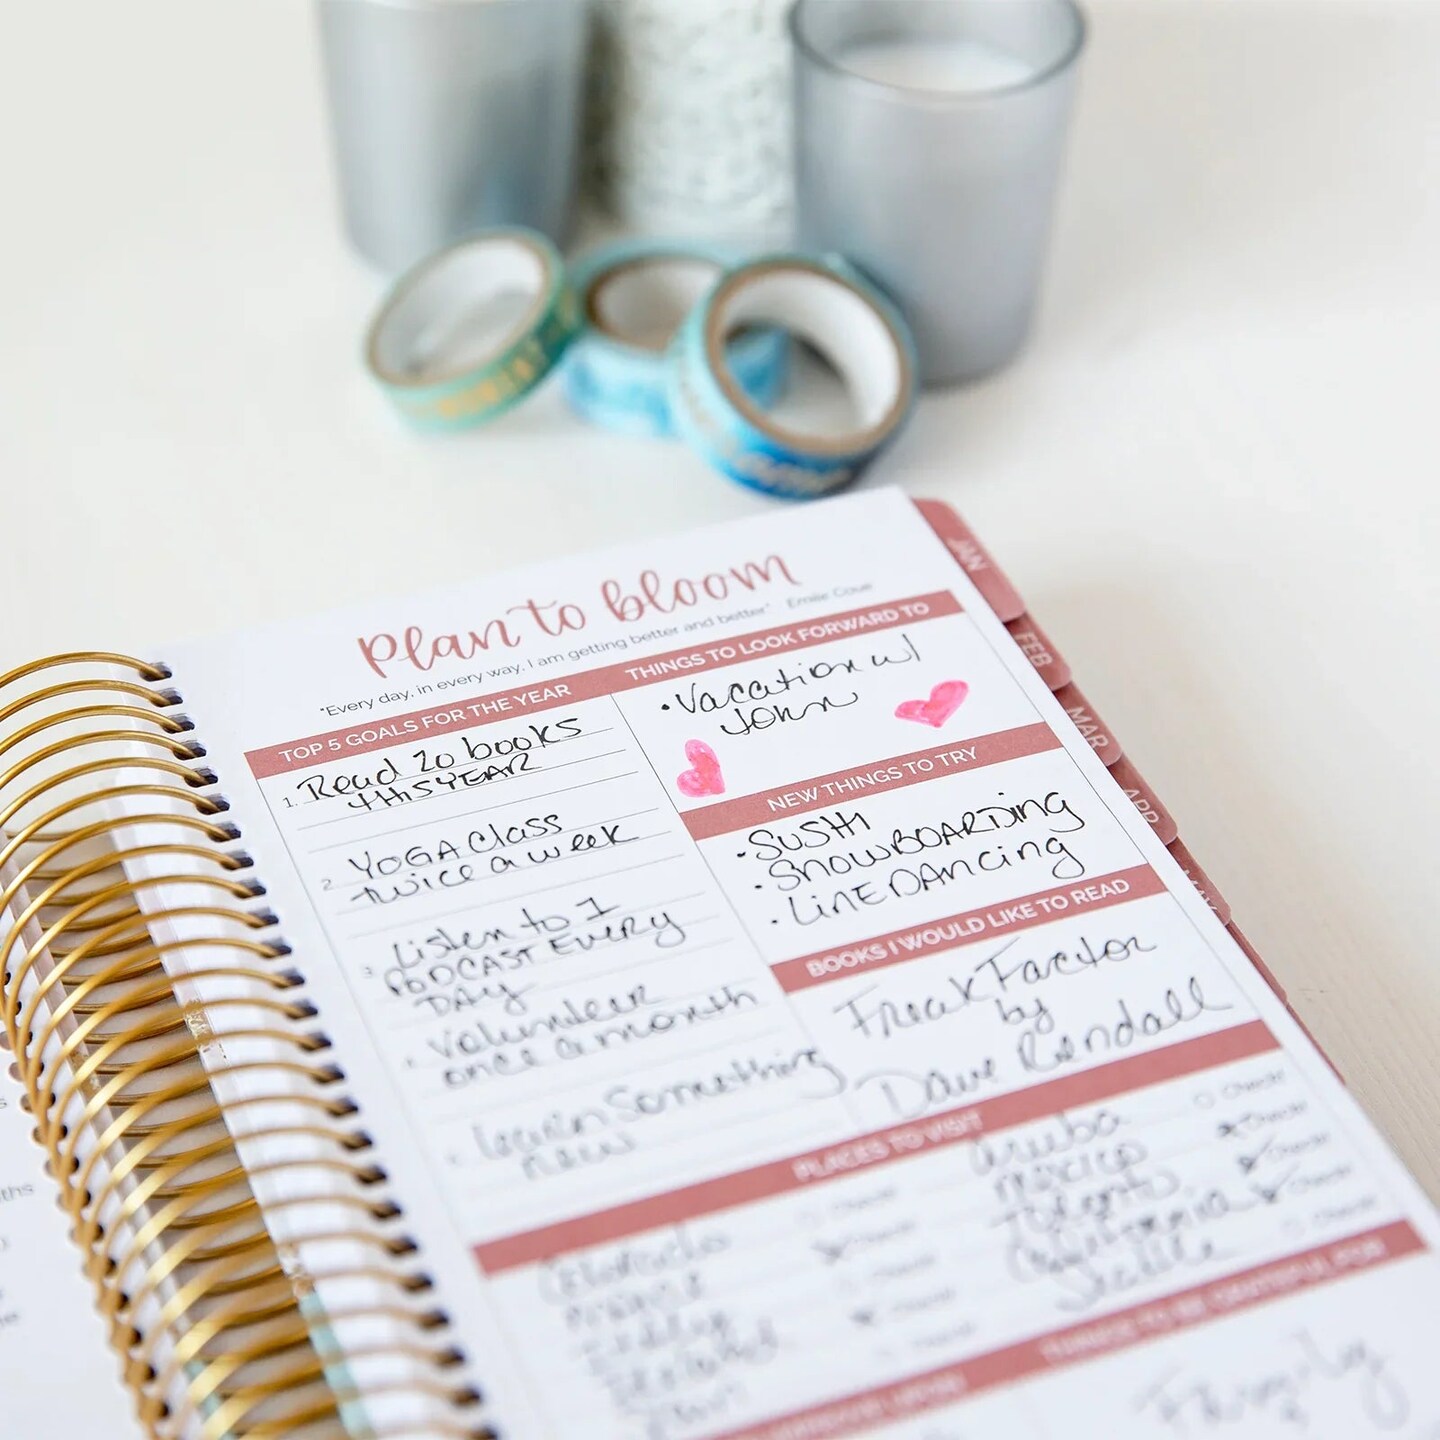 Plan to bloom
"Every day, in every way, I am getting better and better" Emile Coue
TOP 5 GOALS FOR THE YEAR
1. Read 20 books
this YEAR
2 YOGA Class
twice a week
3 Listen to 1
PODCAST EVERY
DAY
Volunteer
once a month
Learn Something
new
THINGS TO LOOK FORWARD TO
• Vacation w/
John
NEW THINGS TO TRY
• SUSHI
• SNOWBOARDing
• LINE DANcing
BOOKS I WOULD LIKE TO READ
Freak Factor
by
Dave Rendall
PLACES TO VISIT
Colorado
Check!
Check!
Check!
Check!
Check!
Aruba
Mexico
Toronto
California
Seattle
Check!
Check!
Check!
Check!
Check!
THINGS TO BE GRATEFUL FOR
Family
JAN
FEB
MAR
APR
MAY
ths